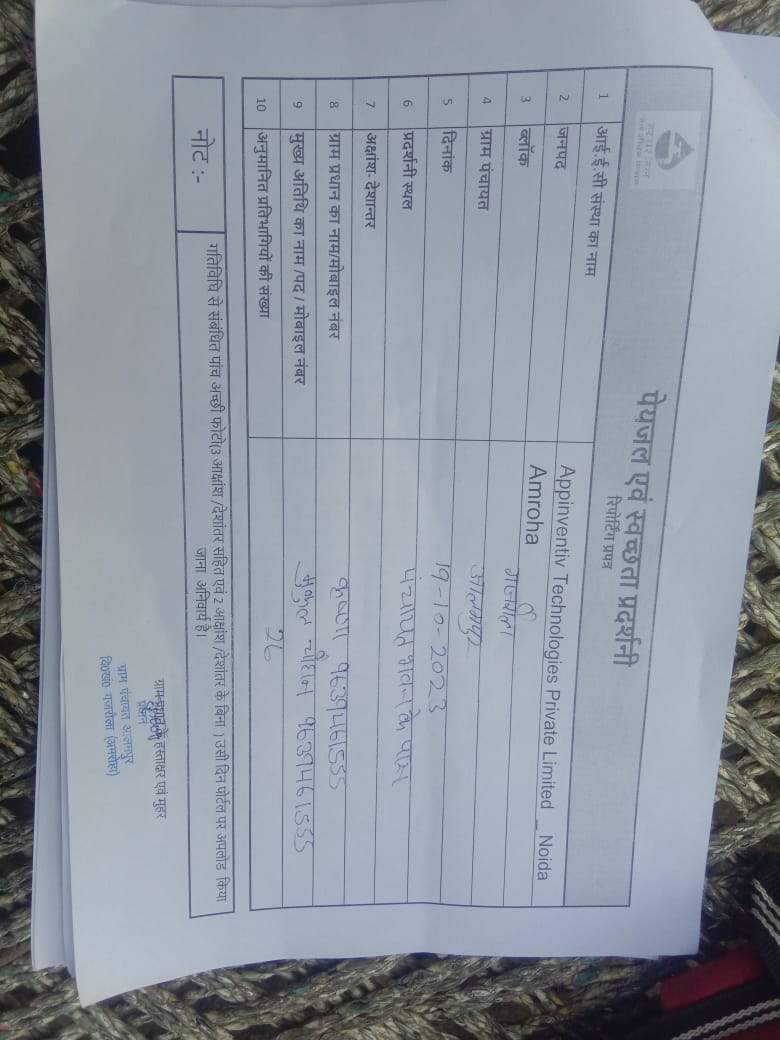 पेयजल एवं स्वच्छता प्रदर्शनी
रिपोर्टिंग प्रपत्र
1 आई.ई.सी संस्था का नाम Appinventiv Technologies Private Limited _ Noida
2 जनपद Amroha
3 ब्लॉक गजरौला
4 ग्राम पंचायत आलमपुर
5 दिनांक 19-10-2023
6 प्रदर्शनी स्थल पंचायत भवन के पास
7 अक्षांश- देशान्तर
8 ग्राम प्रधान का नाम/मोबाइल नंबर कृष्णा 9639461555
9 मुख्य अतिथि का नाम /पद / मोबाइल नंबर चौहान 9639461555
10 अनुमानित प्रतिभागियों की संख्या 26
नोट :- गतिविधि से संबंधित पांच अच्छी फोटो(3 आक्षांश /देशांतर सहित एवं 2 आक्षांश /देशांतर के बिना ) उसी दिन पोर्टल पर अपलोड किया
जाना अनिवार्य है।
ग्राम प्रधान के हस्ताक्षर एवं मुहर
प्रधान
ग्राम पंचायत आलमपुर
वि0खं0 गजरौला (अमरोहा)